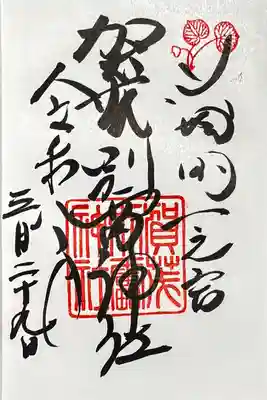 山城国一之宮
賀茂別雷神社
令和
三月二十九日
賀茂
別雷
神社